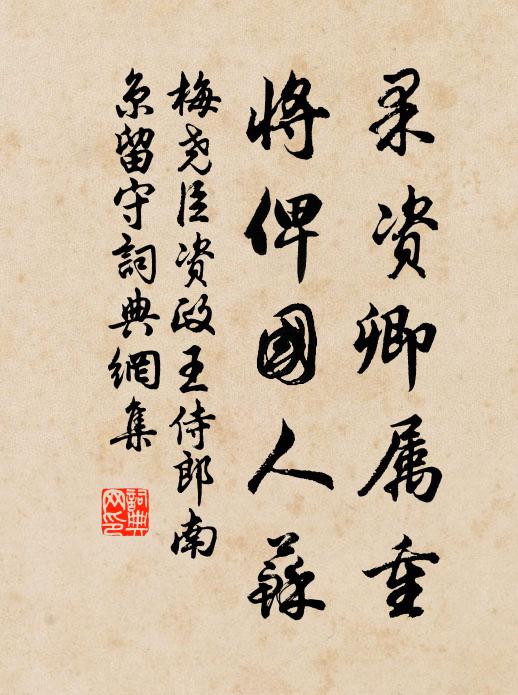 累资卿属重
將俾國人蘇
梅尧臣资政王侍郎南
京留守詞典網集
詞典网印